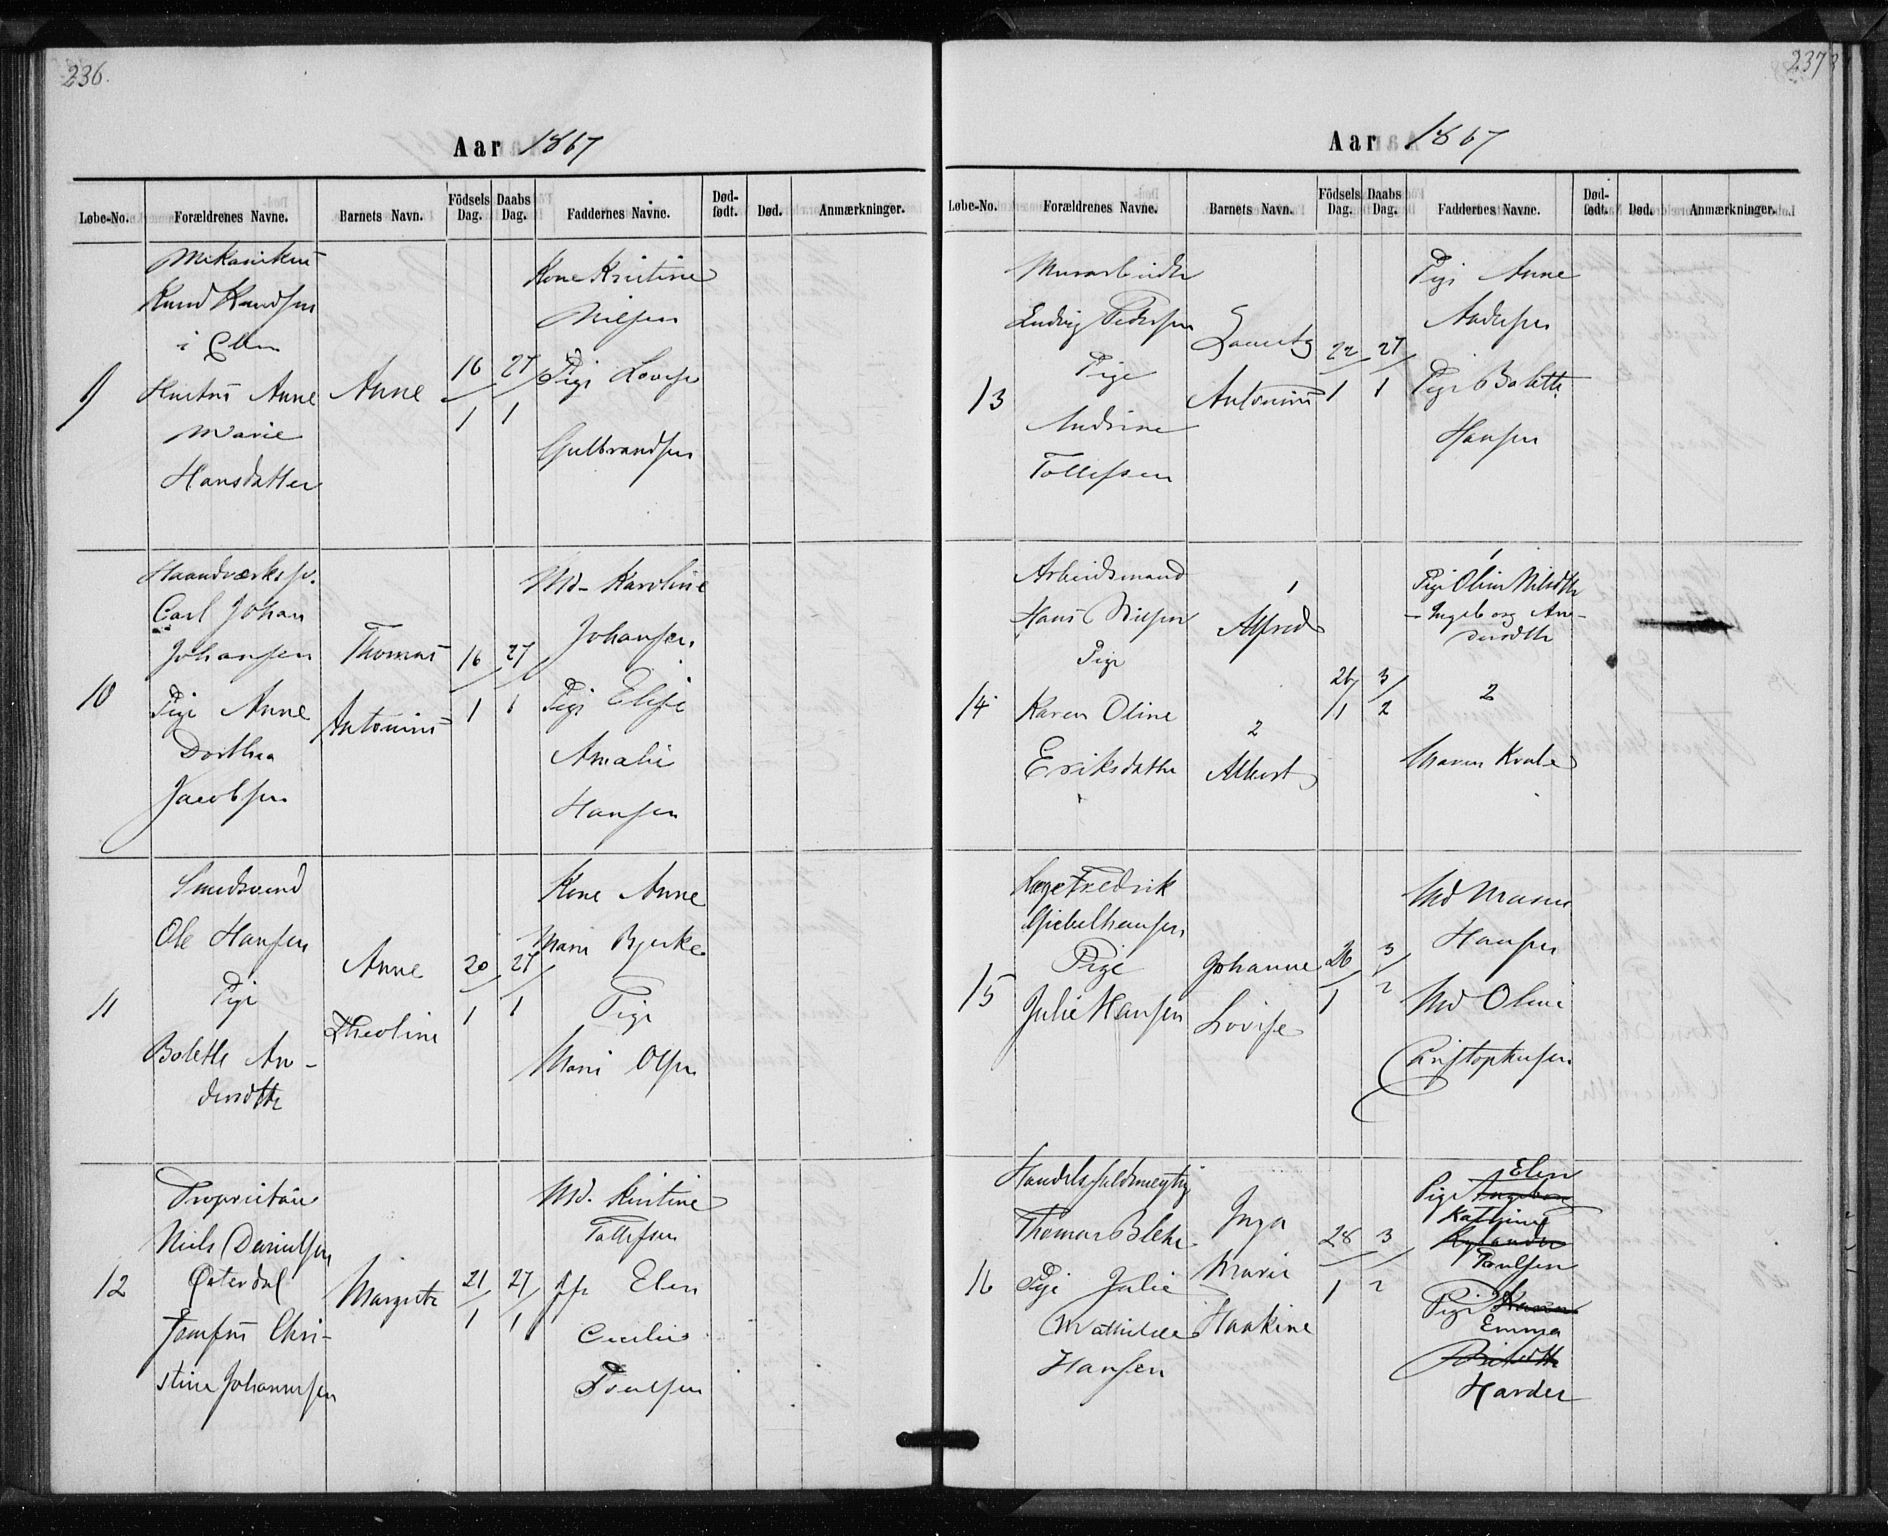 236.
Aar 1867
Løbe-No. Forældrenes Navne. Barnets Navn. Födsels Dag. Daabs Dag. Faddernes Navne. Død-født. Død. Anmærkninger.
9
Mekanikus
Knud Knudsen
i
Hustru Anne
Marie
Hansdatter
Anne
16/1
27/1
Kone Kristine
Nielsen
Pige Lovise
Gulbrandsen
10
Haandværkssv.
Carl Johan
Johansen
Pige Anne
Dorthea
Jacobsen
Thomas
Antonius
16/1
27/1
Md. Karoline
Johansen
Pige Elise
Amalie
Hansen
11
Smedsvend
Ole Hansen
Pige
Bolette An-
dersdttr
Anne
Theoline
20/1
27/1
Kone Anne
Marie Bjerke
Pige
Marie Olsen
12
Proprietær
Niels Danielsen
Østerdal
Jomfru Chri-
stine Johannesen
Margrete
21/1
27/1
Md. Kristine
Tollefsen
Jfr Elen
Cecilie
Poulsen
2373
Aar 1867
Løbe-No. Forældrenes Navne. Barnets Navn. Födsels Dag. Daabs Dag. Faddernes Navne. Død-født. Død. Anmærkninger.
13
Murarbeider
Ludvig Pedersen
Pige
Andrine
Tollefsen
Lauritz
Antonius
22/1
27/1
Pige Anne
Andersen
Pige Bolette
Hansen
14
Arbeidsmand
Hans Nilsen
Pige
Karen Oline
Eriksdatter
1
Alfred
2
Albert
26/1
3/2
1
Pige Oline Nilsdttr
- Ingeborg An-
dersdttr
2
Maren Kval
15
Læge Fredrik
Giebelhausen
Pige
Julie Hansen
Johanne
Lovise
26/1
3/2
Md Maren
Hansen
Md Oline
Christophersen
16
Handelsfuldmegtig
Thomas Blehr
Pige Julie
Mathilde
Hansen
Inga
Marie
Haakine
28/1
3/2
Elen
Pige Ingeborg
Kathrine
Rylander
Poulsen
Pige Karen
Emma
Harder